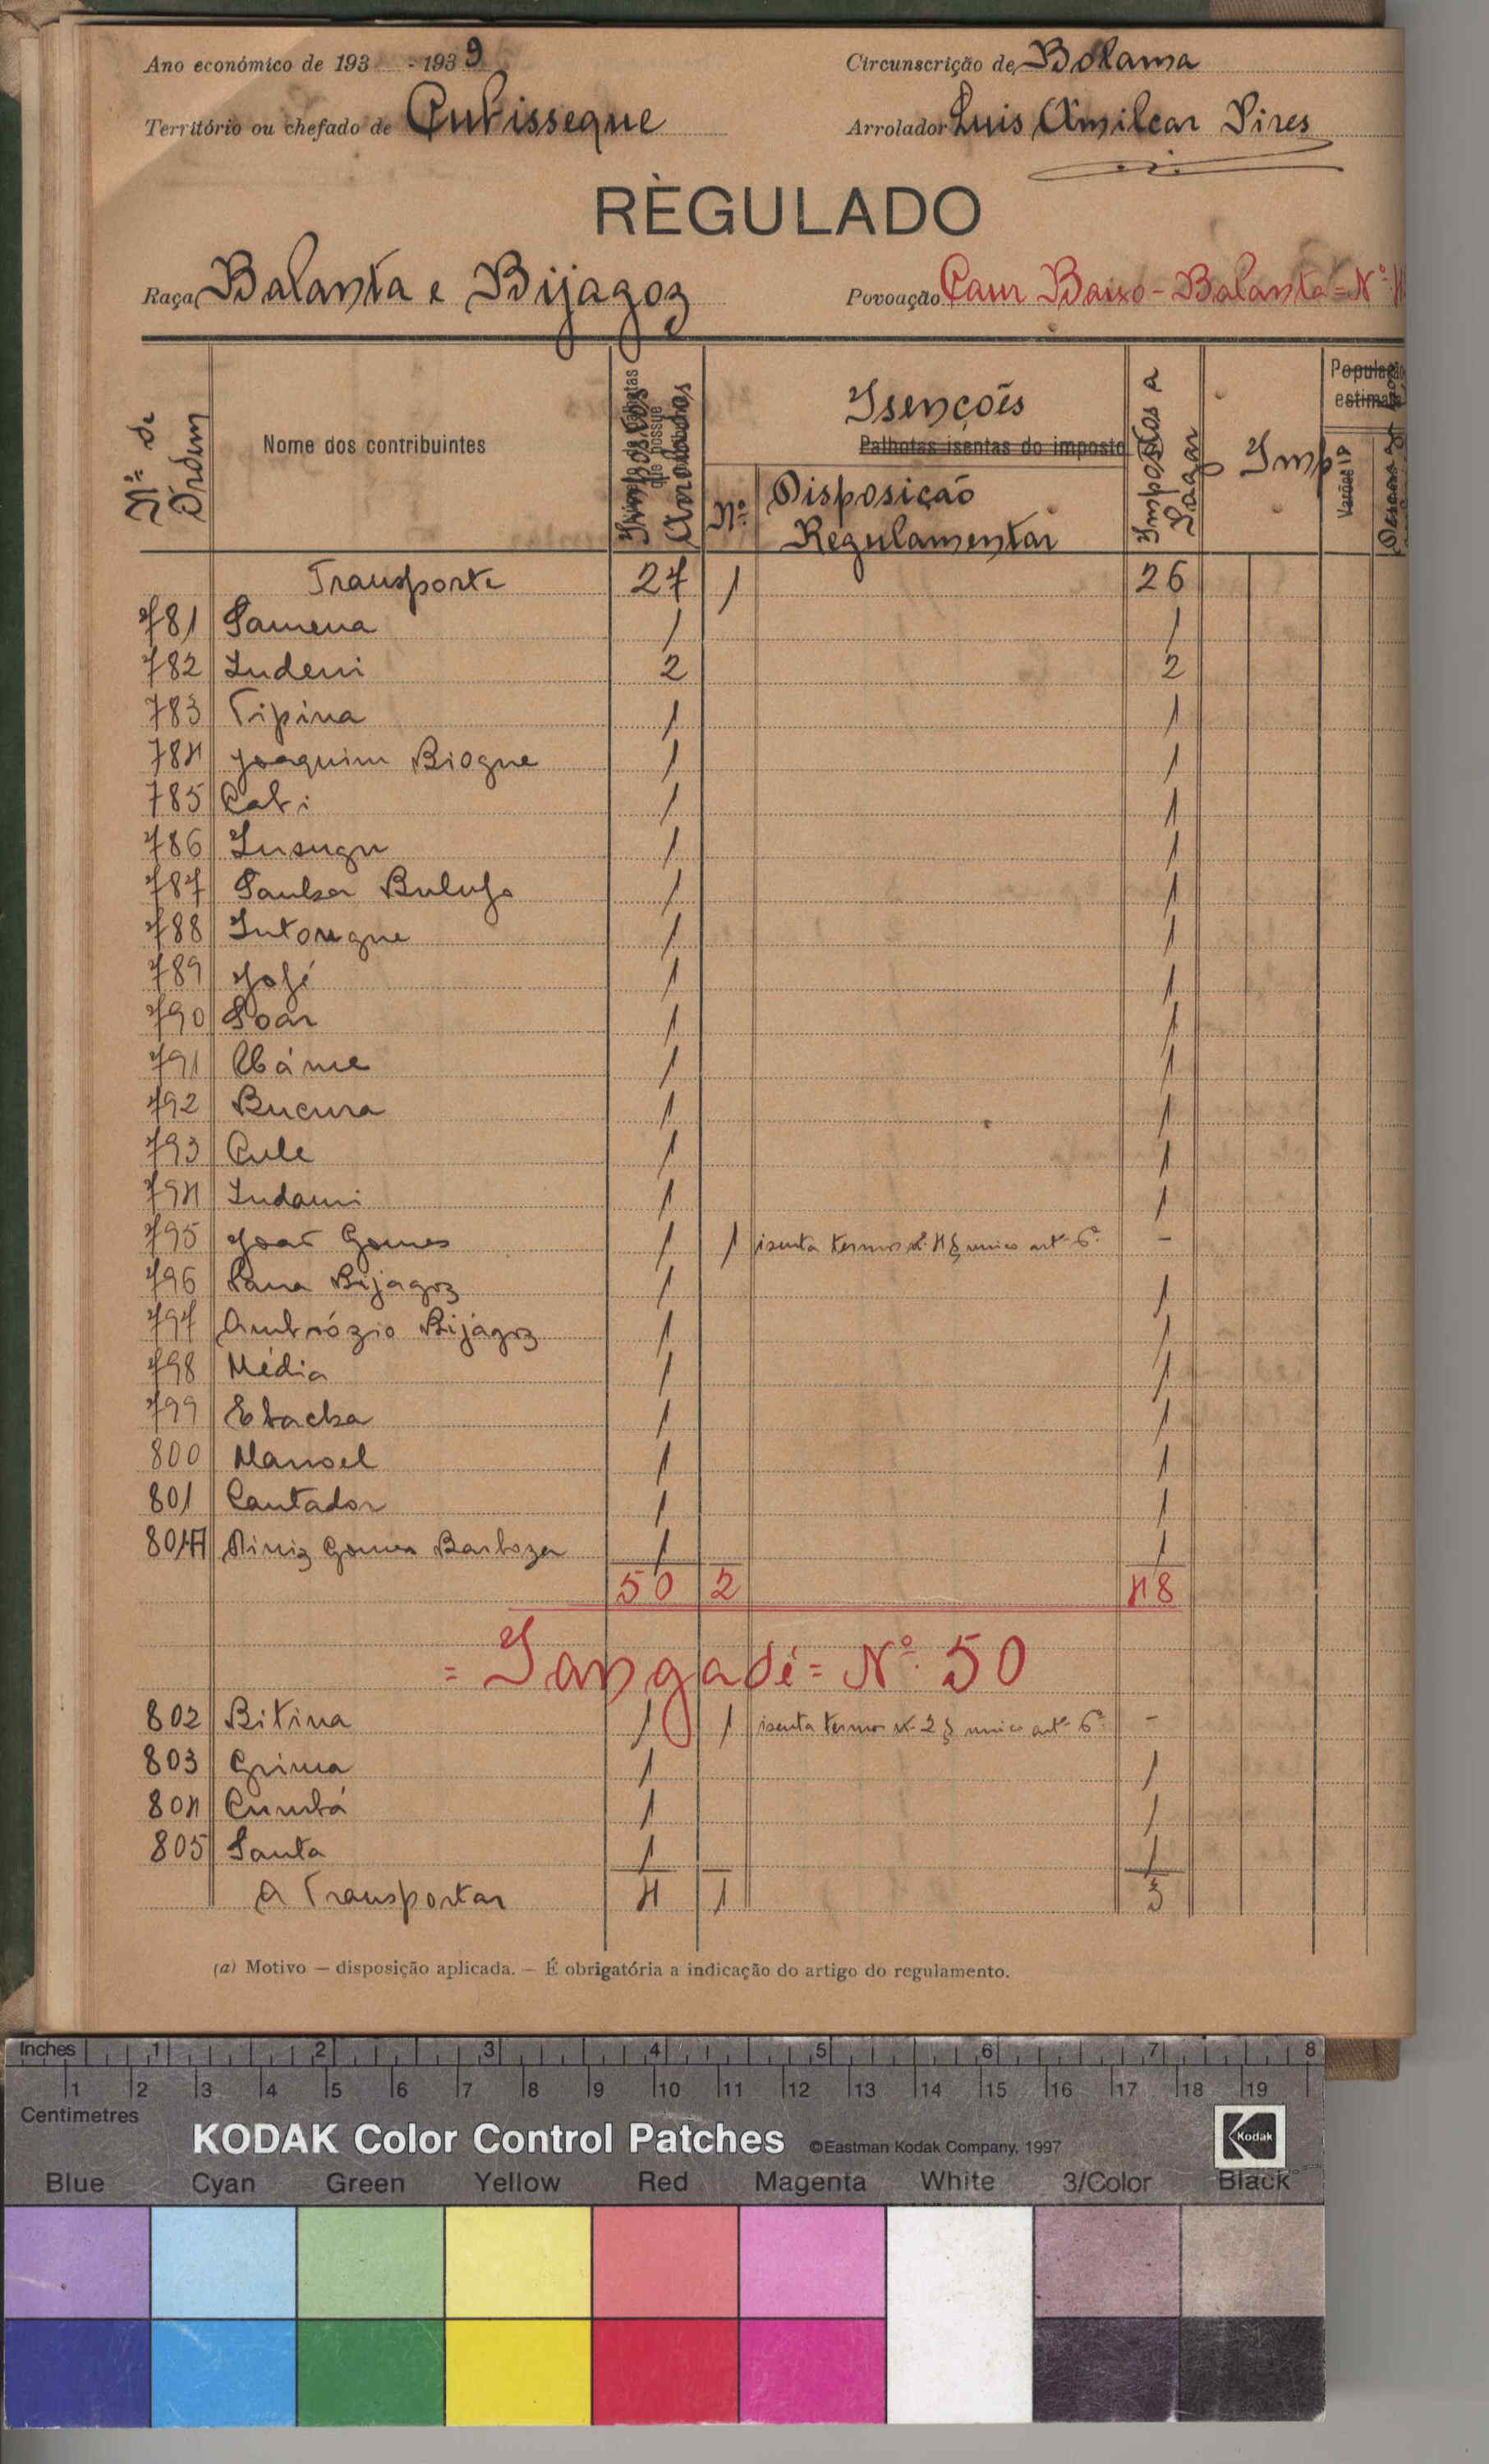 Ano económico de 193 - 1939
Circunscrição de Bolama
Território ou chefado de Cubisseque
Arrolador Luis Amilcar Pires
RÈGULADO
Raça Balanta e Bijagoz
Povoação Caur Baixo - Balanta = Nº
Nº de Ordem
Nome dos contribuintes
Impostos Arrolados
Isenções
Palhotas isentas do imposto
Nº
Disposição Regulamentar
Impostos a Pagar
Imp
Varões IP
Transporte 27 1 26
781 Samena 1 1
782 Indeni 2 2
783 Tipina 1 1
784 Joaquim Biogne 1 1
785 Cabi 1 1
786 Insugu 1 1
787 Sanha Bulufo 1 1
788 Intongne 1 1
789 José 1 1
790 Soar 1 1
791 Abáme 1 1
792 Bucura 1 1
793 Cule 1 1
794 Indami 1 1
795 João Gomes 1 1 isenta termos nº 4 § unico artº 6º -
796 Pana Bijagoz 1 1
797 Ambrózio Bijagoz 1 1
798 Média 1 1
799 1 1
800 Manoel 1 1
801 Cantador 1 1
801A Diniz Gomes Barboza 1 1
50 2 48
= Jangadé = Nº 50
802 Bitina 1 1 isenta termos nº 2 § unico artº 6º -
803 Grima 1 1
804 Cumbá 1 1
805 Santa 1 1
A Transportar 4 1 3
(a) Motivo — disposição aplicada. — É obrigatória a indicação do artigo do regulamento.
Inches 1 2 3 4 5 6 7 8
1 2 3 4 5 6 7 8 9 10 11 12 13 14 15 16 17 18 19
Centimetres
KODAK Color Control Patches ©Eastman Kodak Company, 1997 Kodak
Blue Cyan Green Yellow Red Magenta White 3/Color Black